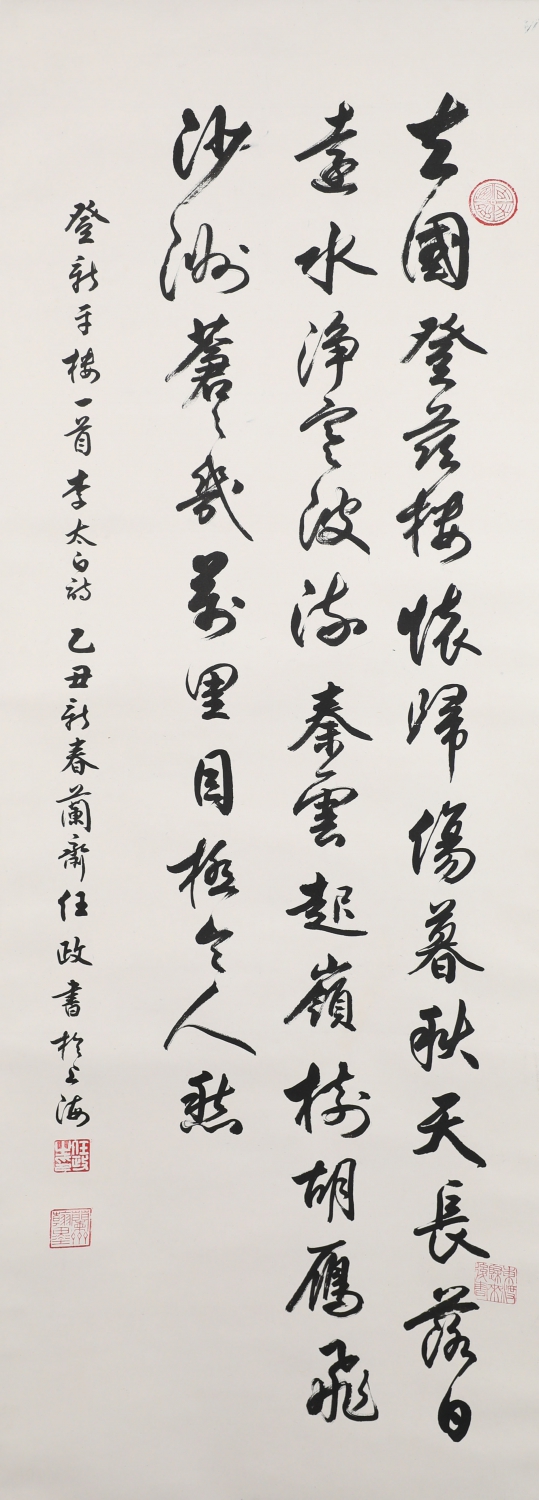 去國登茲樓懷歸傷暮秋天長落日
遠水淨寒波流秦雲起嶺樹胡鴈飛
沙洲蒼〻幾萬里目極令人愁
登新平樓一首李太白詩乙丑新春蘭齋任政書於上海
任政